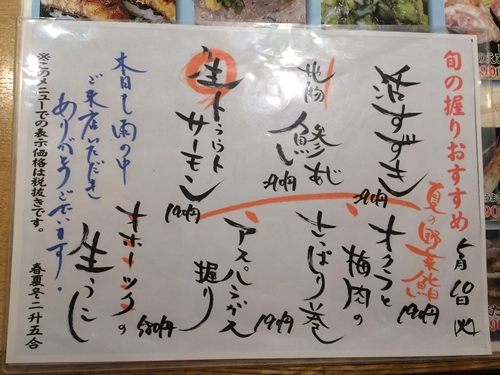 旬の握りおすすめ
5月10日(火)
活すずき
390円
地物
鯵あじ
290円
生トラウト
サーモン
190円
夏の野菜鮨
オクラと
梅肉の
さっぱり巻
190円
アスパラガス
握り
190円
オホーツクの
生うに
580円
本日も雨の中
ご来店いただき
ありがとうございます。
※このメニューでの表示価格は税抜きです。
春夏冬二升五合